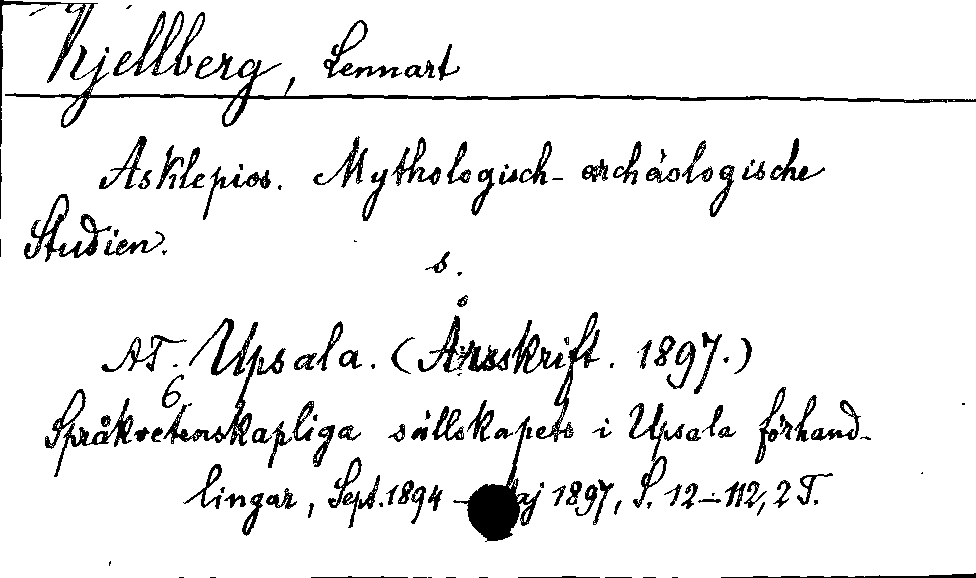 Kjellberg, Lennart
Asklepios. Mythologisch-archäologische
Studien.
s.
AT. Upsala. (Årsskrift. 1897.)
6.
Språkvetenskapliga sällskapets i Upsala förhand-
lingar, Sept. 1894 – Maj 1897, S. 12–112, 2 T.